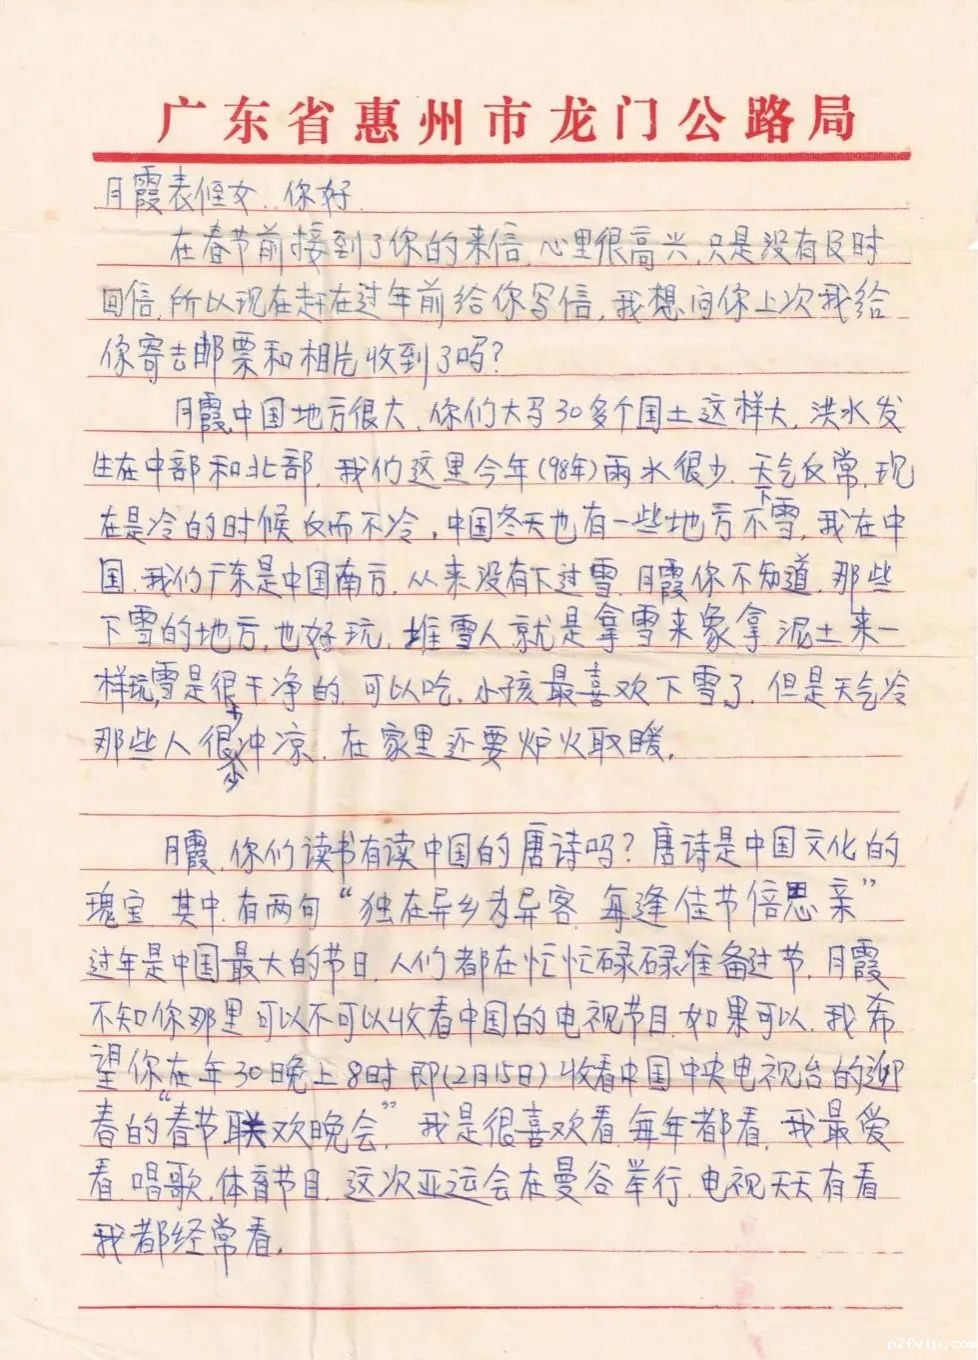 广东省惠州市龙门公路局
月霞表侄女:你好
在春节前接到了你的来信,心里很高兴,只是没有及时
回信,所以现在赶在过年前给你写信,我想问你上次我给
你寄去邮票和相片收到了吗?
月霞,中国地方很大,你们大马30多个国土这样大,洪水发
生在中部和北部,我们这里今年(98年)雨水很少,天气反常,现
在是冷的时候反而不冷,中国冬天也有一些地方不下雪,我在中
国,我们广东是中国南方,从来没有下过雪,月霞你不知道,那些
下雪的地方,也好玩,堆雪人就是拿雪来象拿泥土来一
样玩,雪是很干净的,可以吃,小孩最喜欢下雪了,但是天气冷
那些人很少冲凉,在家里还要炉火取暖.
月霞,你们读书有读中国的唐诗吗?唐诗是中国文化的
瑰宝,其中,有两句“独在异乡为异客,每逢佳节倍思亲”
过年是中国最大的节日,人们都在忙忙碌碌准备过节,月霞
不知你那里可以不可以收看中国的电视节目,如果可以,我希
望你在年30晚上8时即(2月15日)收看中国中央电视台的迎
春的“春节联欢晚会”,我是很喜欢看,每年都看,我最爱
看唱歌,体育节目,这次亚运会在曼谷举行,电视天天有看
我都经常看.
p2fvip.com